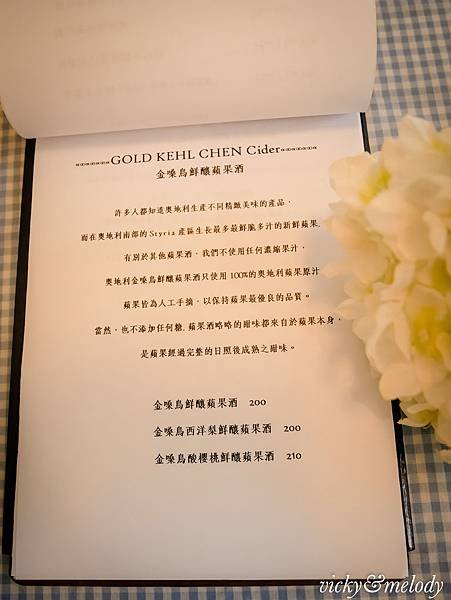 GOLD KEHL CHEN Cider
金嗓鳥鮮釀蘋果酒
許多人都知道奧地利生產不同精緻美味的產品,
而在奧地利南部的Styria產區生長最多最鮮脆多汁的新鮮蘋果,
有別於其他蘋果酒, 我們不使用任何濃縮果汁,
奧地利金嗓鳥鮮釀蘋果酒只使用100%的奧地利蘋果原汁,
蘋果皆為人工手摘, 以保持蘋果最優良的品質。
當然, 也不添加任何糖, 蘋果酒略略的甜味都來自於蘋果本身,
是蘋果經過完整的日照後成熟之甜味。
金嗓鳥鮮釀蘋果酒 200
金嗓鳥西洋梨鮮釀蘋果酒 200
金嗓鳥酸櫻桃鮮釀蘋果酒 210
vicky&melody